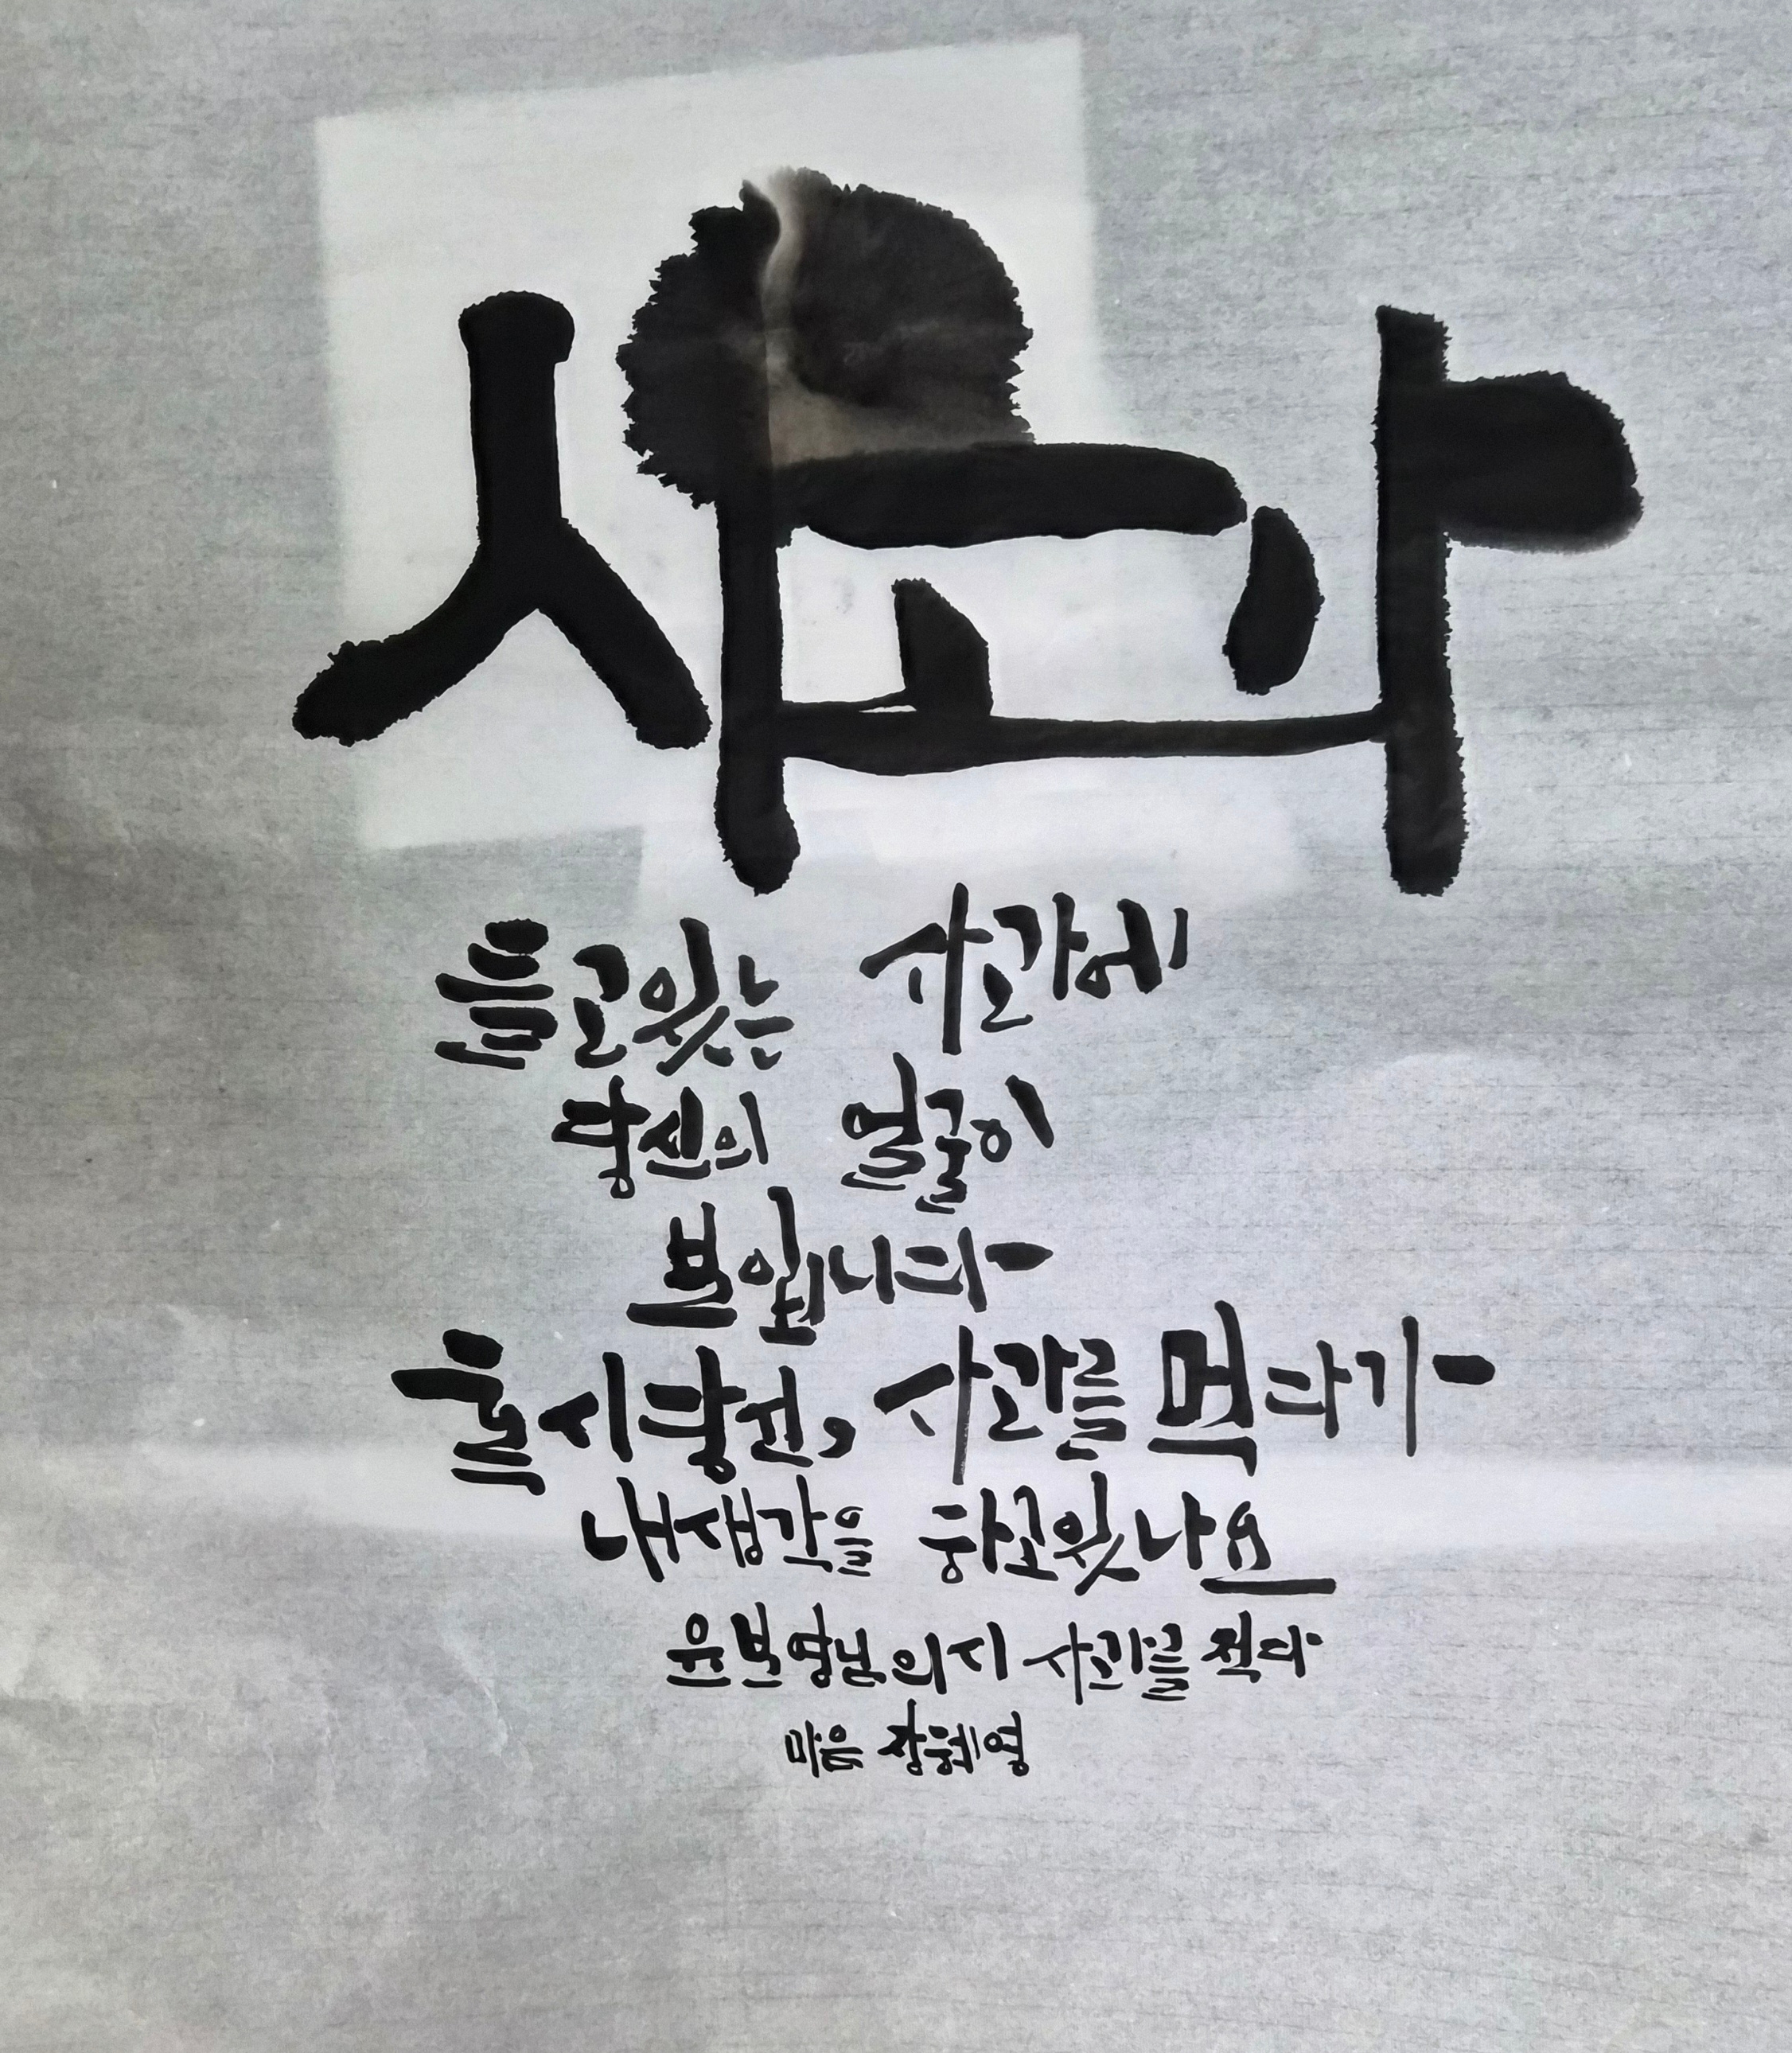 사과
들고있는 사과에
당신의 얼굴이
보입니다
혹시당신, 사과를 먹다가
내생각을 하고있나요
윤보영님의시 사과를 적다
마음 장혜영